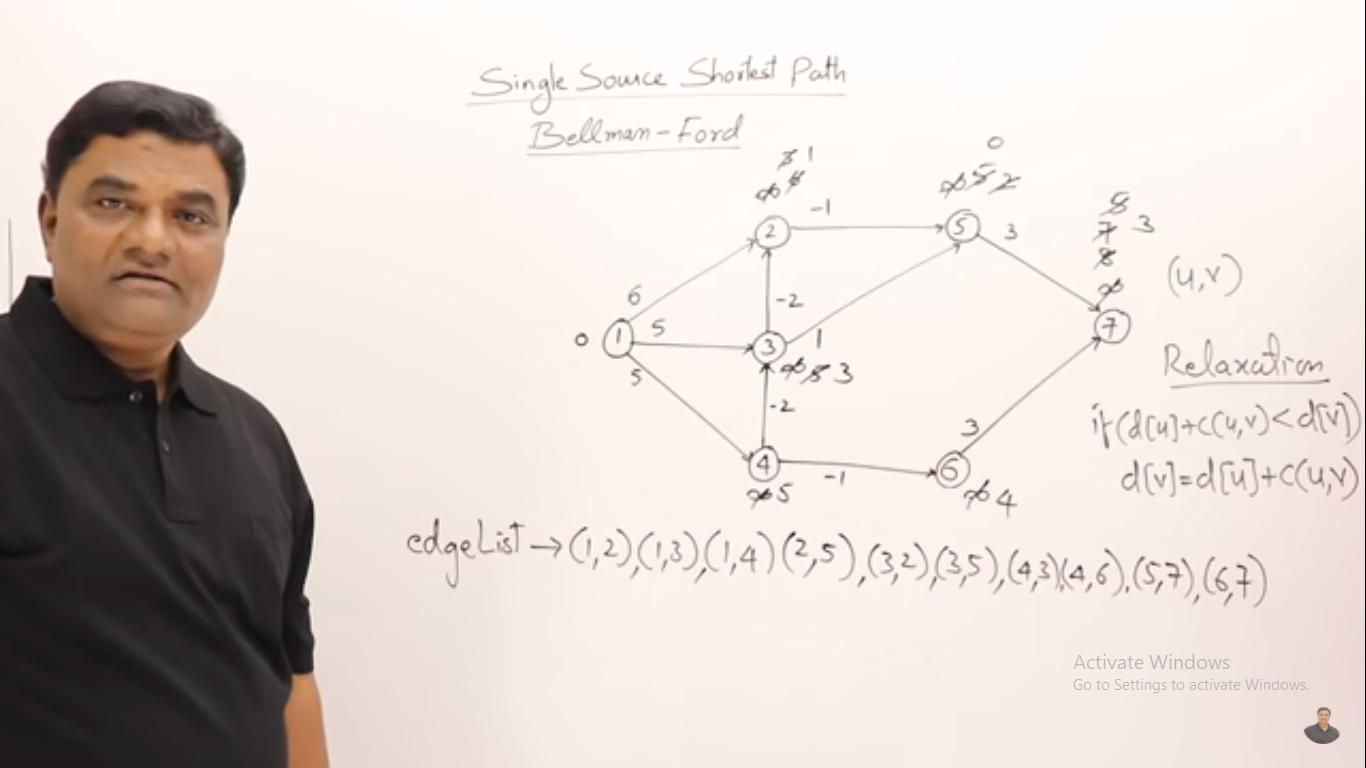 Single Source Shortest Path
Bellman-Ford
3 1
∞ 4
0
∞ 5 2
8
7 3
8
∞
2
-1
5
3
(u,v)
6
-2
7
0
1
5
3
1
∞ 5 3
Relaxation
5
-2
if(d[u]+c(u,v)<d[v])
3
4
-1
6
d[v]=d[u]+c(u,v)
∞ 5
∞ 4
edgeList → (1,2),(1,3),(1,4)(2,5),(3,2),(3,5),(4,3)(4,6),(5,7),(6,7)
Activate Windows
Go to Settings to activate Windows.